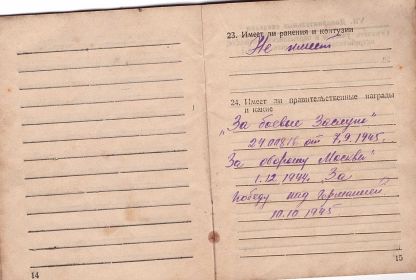 14
23. Имеет ли ранения и контузии
Не имеет
24. Имеет ли правительственные награды
и какие
„За боевые Заслуги"
от 7.9.1945.
За оборону Москвы"
1.12.1944. За
Победу над Германией
10.10 1945
15